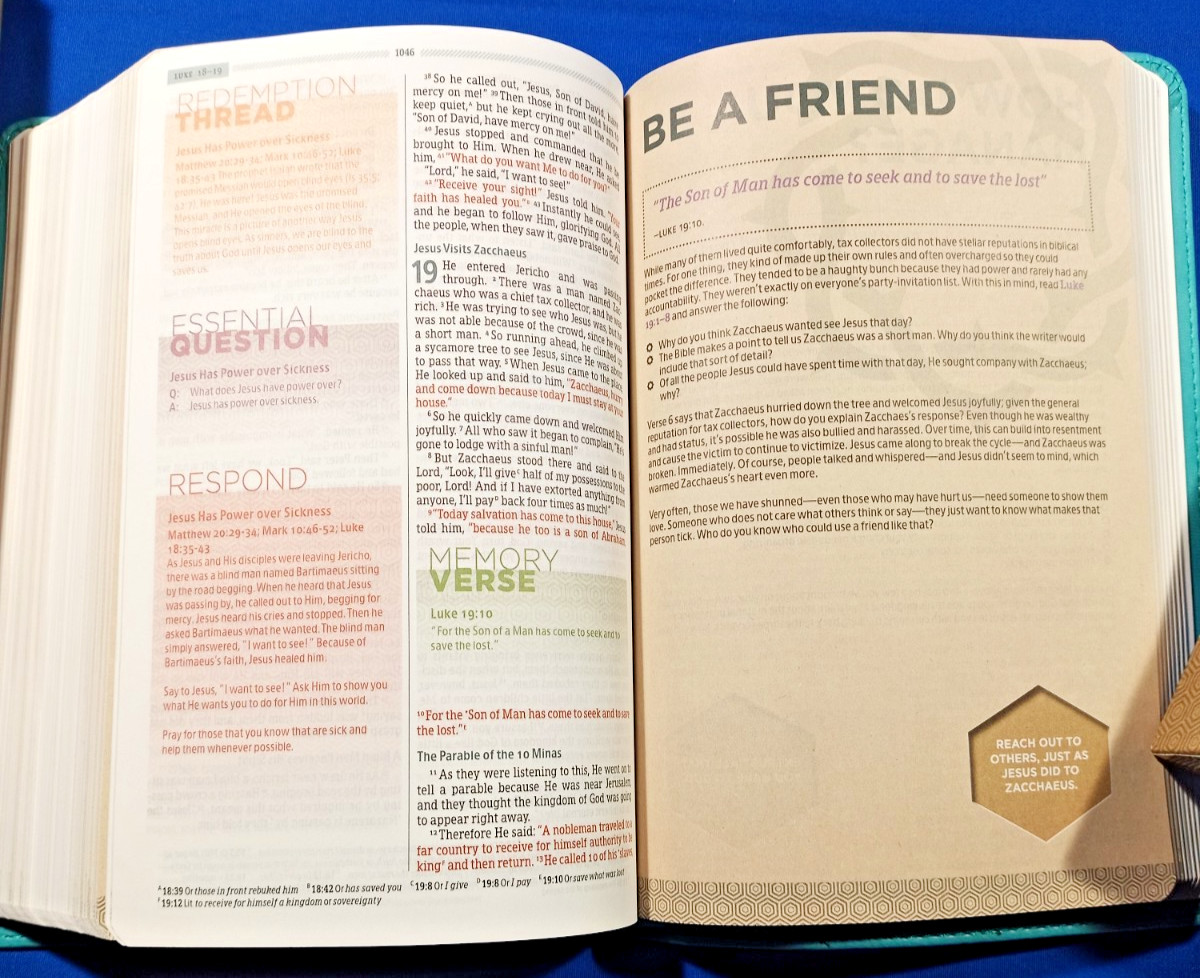 LUKE 18–19
1046
REDEMPTION
THREAD
Jesus Has Power over Sickness
Matthew 20:29-34; Mark 10:46-52; Luke
18:35-43 The prophet Isaiah wrote that the
promised Messiah would open blind eyes (Is 35:5;
42:7). He was here! Jesus was the promised
Messiah, and He opened the eyes of the blind.
This miracle is a picture of another way Jesus
opens blind eyes. As sinners, we are blind to the
truth about God until Jesus opens our eyes and
saves us.
ESSENTIAL
QUESTION
Jesus Has Power over Sickness
Q: What does Jesus have power over?
A: Jesus has power over sickness.
RESPOND
Jesus Has Power over Sickness
Matthew 20:29-34; Mark 10:46-52; Luke
18:35-43
As Jesus and His disciples were leaving Jericho,
there was a blind man named Bartimaeus sitting
by the road begging. When he heard that Jesus
was passing by, he called out to Him, begging for
mercy. Jesus heard his cries and stopped. Then he
asked Bartimaeus what he wanted. The blind man
simply answered, "I want to see!" Because of
Bartimaeus's faith, Jesus healed him.
Say to Jesus, "I want to see!" Ask Him to show you
what He wants you to do for Him in this world.
Pray for those that you know that are sick and
help them whenever possible.
38 So he called out, "Jesus, Son of David, have
mercy on me!" 39 Then those in front told him to
keep quiet,A but he kept crying out all the more,
"Son of David, have mercy on me!"
40 Jesus stopped and commanded that he be
brought to Him. When he drew near, He asked
him, 41 "What do you want Me to do for you?"
"Lord," he said, "I want to see!"
42 "Receive your sight!" Jesus told him. "Your
faith has healed you."B 43 Instantly he could see,
and he began to follow Him, glorifying God. All
the people, when they saw it, gave praise to God.
Jesus Visits Zacchaeus
19 He entered Jericho and was passing
through. 2 There was a man named Zac-
chaeus who was a chief tax collector, and he was
rich. 3 He was trying to see who Jesus was, but he
was not able because of the crowd, since he was
a short man. 4 So running ahead, he climbed up
a sycamore tree to see Jesus, since He was about
to pass that way. 5 When Jesus came to the place,
He looked up and said to him, "Zacchaeus, hurry
and come down because today I must stay at your
house."
6 So he quickly came down and welcomed Him
joyfully. 7 All who saw it began to complain, "He's
gone to lodge with a sinful man!"
8 But Zacchaeus stood there and said to the
Lord, "Look, I'll giveC half of my possessions to the
poor, Lord! And if I have extorted anything from
anyone, I'll payD back four times as much!"
9 "Today salvation has come to this house," Jesus
told him, "because he too is a son of Abraham.
MEMORY
VERSE
Luke 19:10
"For the Son of a Man has come to seek and to
save the lost."
10 For the 'Son of Man has come to seek and to save
the lost."E
The Parable of the 10 Minas
11 As they were listening to this, He went on to
tell a parable because He was near Jerusalem,
and they thought the kingdom of God was going
to appear right away.
12 Therefore He said: "A nobleman traveled to a
far country to receive for himself authority to be
kingF and then return. 13 He called 10 of his 'slaves,
A 18:39 Or those in front rebuked him B 18:42 Or has saved you C 19:8 Or I give D 19:8 Or I pay E 19:10 Or save what was lost
F 19:12 Lit to receive for himself a kingdom or sovereignty
BE A FRIEND
"The Son of Man has come to seek and to save the lost"
–LUKE 19:10.
While many of them lived quite comfortably, tax collectors did not have stellar reputations in biblical
times. For one thing, they kind of made up their own rules and often overcharged so they could
pocket the difference. They tended to be a haughty bunch because they had power and rarely had any
accountability. They weren't exactly on everyone's party-invitation list. With this in mind, read Luke
19:1–8 and answer the following:
Why do you think Zacchaeus wanted see Jesus that day?
The Bible makes a point to tell us Zacchaeus was a short man. Why do you think the writer would
include that sort of detail?
Of all the people Jesus could have spent time with that day, He sought company with Zacchaeus;
why?
Verse 6 says that Zacchaeus hurried down the tree and welcomed Jesus joyfully; given the general
reputation for tax collectors, how do you explain Zacchaes's response? Even though he was wealthy
and had status, it's possible he was also bullied and harassed. Over time, this can build into resentment
and cause the victim to continue to victimize. Jesus came along to break the cycle—and Zacchaeus was
broken. Immediately. Of course, people talked and whispered—and Jesus didn't seem to mind, which
warmed Zacchaeus's heart even more.
Very often, those we have shunned—even those who may have hurt us—need someone to show them
love. Someone who does not care what others think or say—they just want to know what makes that
person tick. Who do you know who could use a friend like that?
REACH OUT TO
OTHERS, JUST AS
JESUS DID TO
ZACCHAEUS.